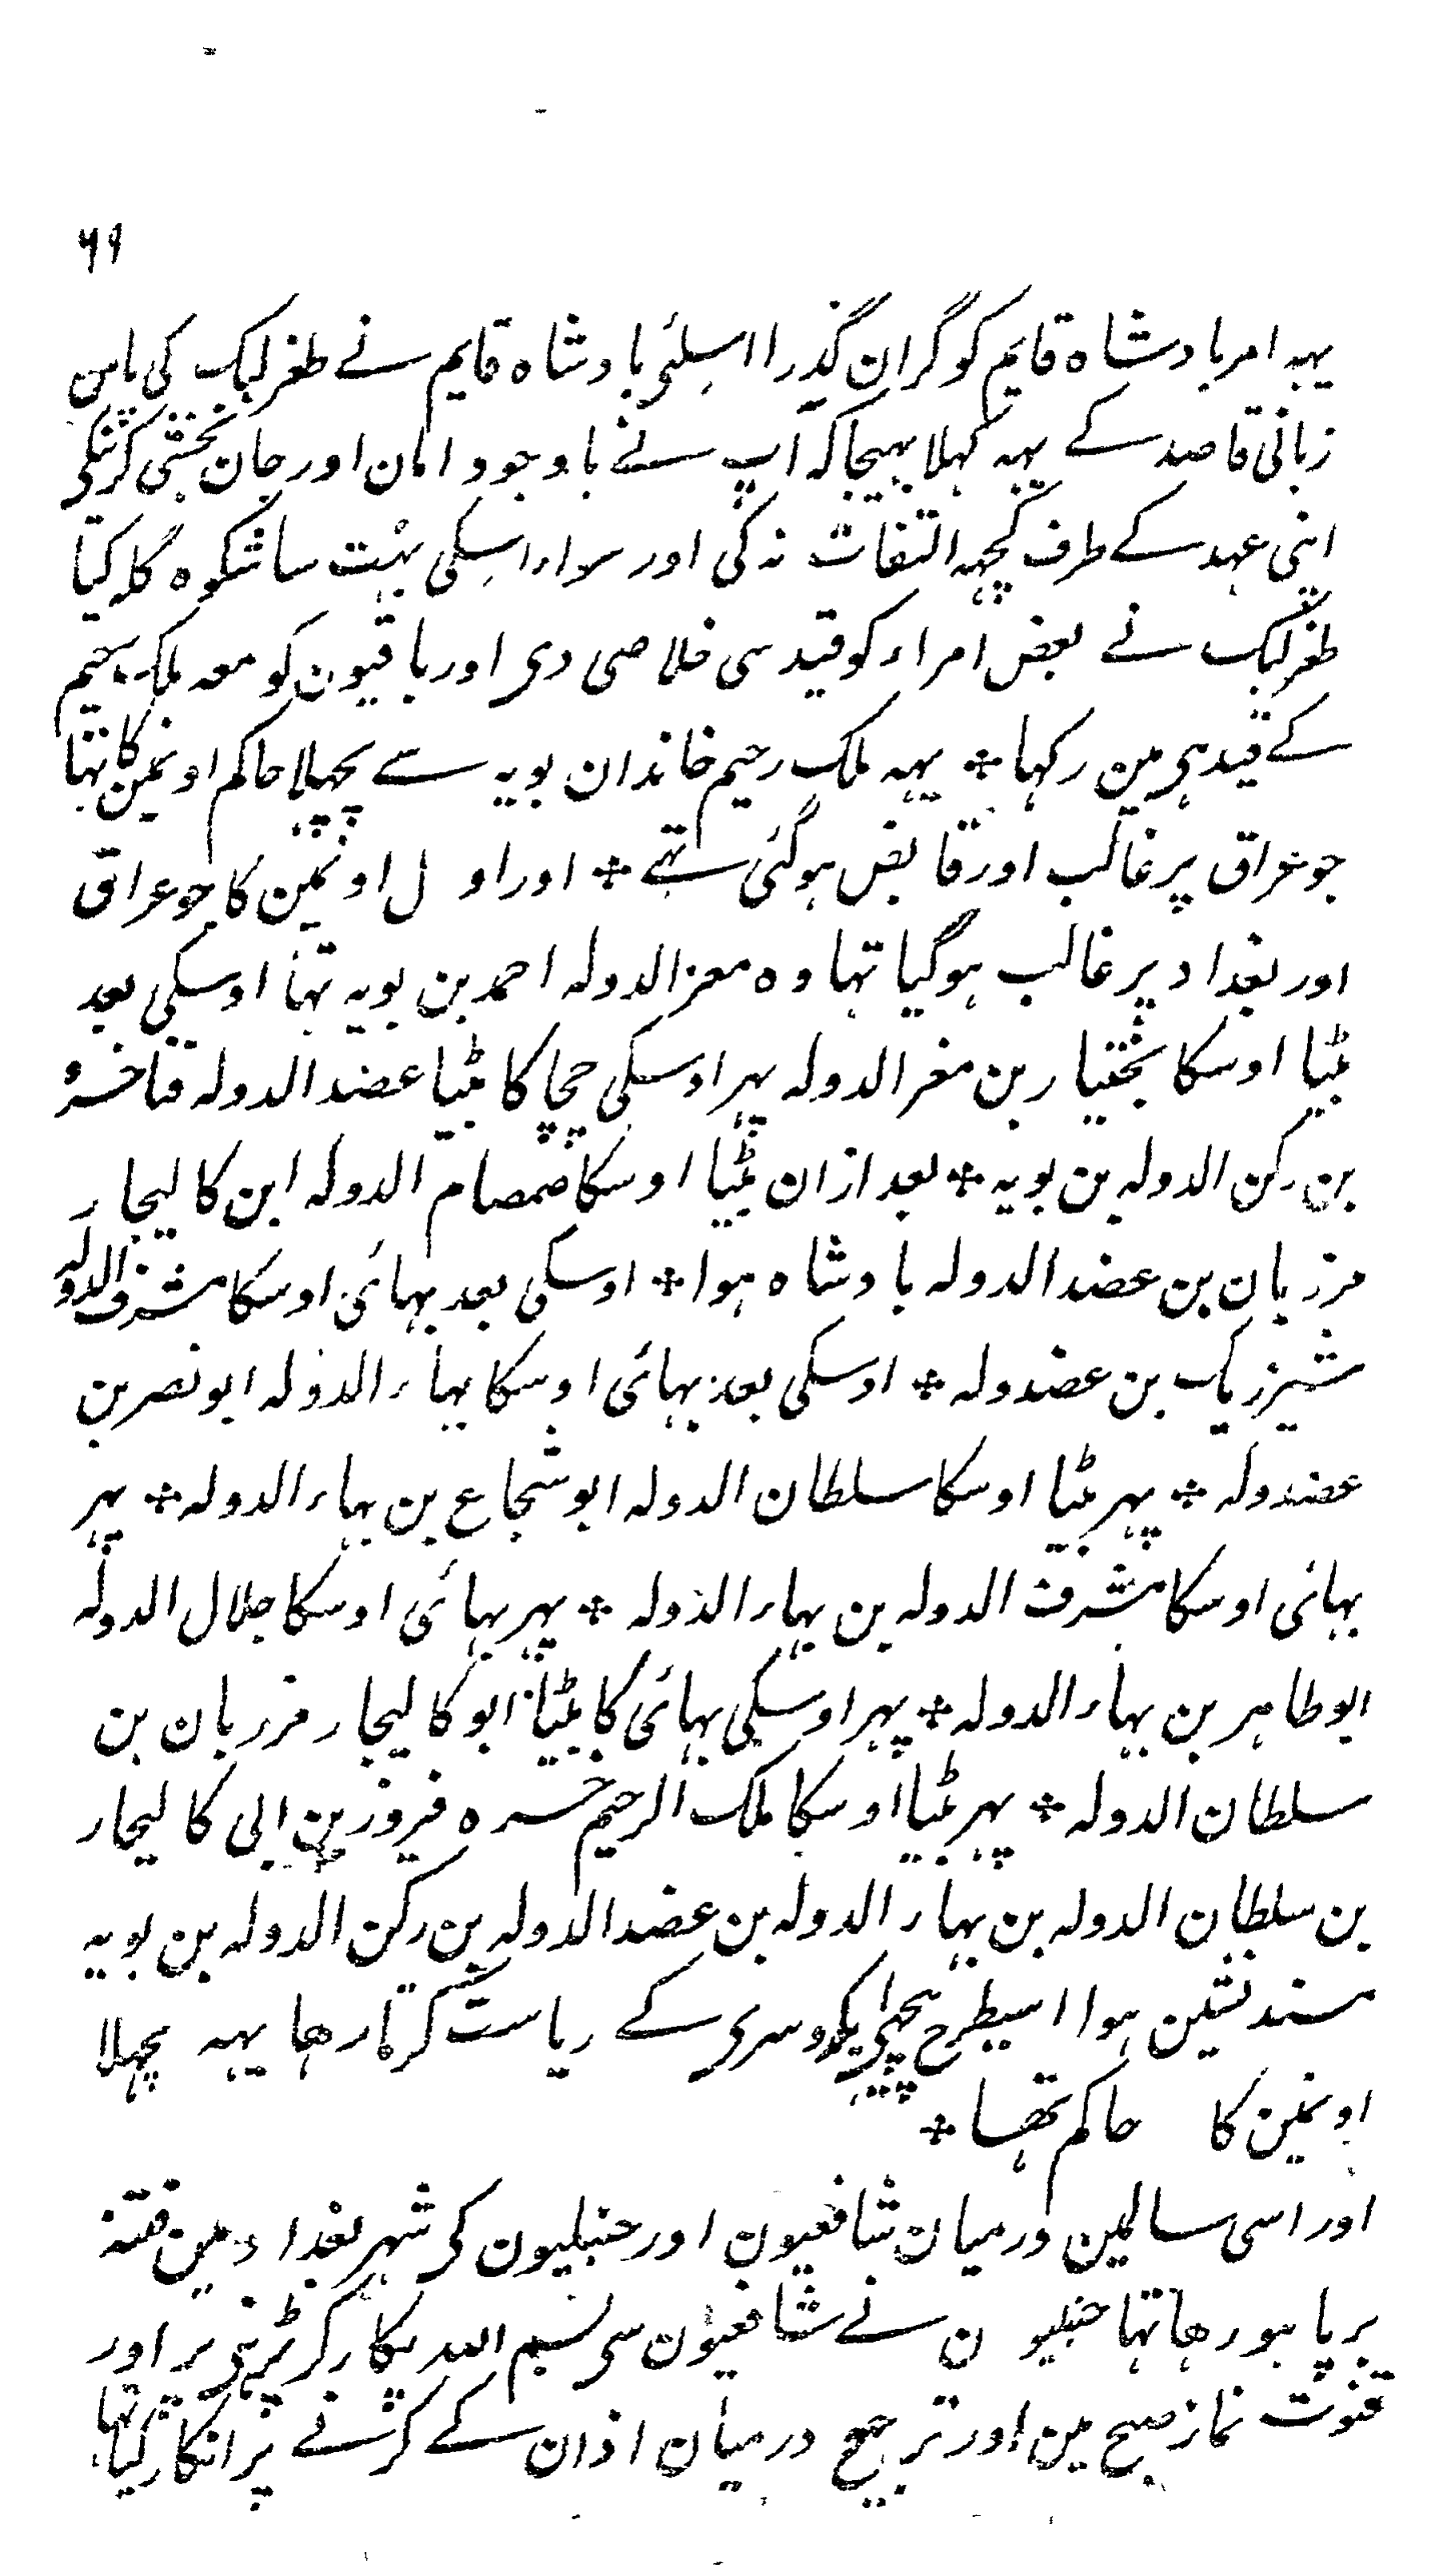 ۶۹
یہہ امر بادشاہ قایم کو گران گذرا اسلئی بادشاہ قایم نے طغرلبک کی پاس
زبانی قاصد کے یہہ کہلا بہیجا کہ آپ نے باوجود امان اور جان بخشی کرنیکی
اپنی عہد کے طرف کچہہ التفات نہ کی اور سواء اسکی بہت سا شکوہ گلہ کیا
طغرلبک نے بعض امراء کو قید سی خلاصی دی اور باقیون کو معہ ملک رحیم
کے قید ہی مین رکہا ٭ یہہ ملک رحیم خاندان بویہ سے پچہلا حاکم اونمین کا تہا
جو عراق پر غالب اور قابض ہوگئی تہے ٭ اور اول اونمین کا جو عراق
اور بغداد پر غالب ہوگیا تہا وہ معز الدولہ احمد بن بویہ تہا اوسکی بعد
بٹیا اوسکا بختیار بن معز الدولہ پہر اوسکی چچا کا بٹیا عضد الدولہ فناخسرو
بن رکن الدولہ بن بویہ ٭ بعد ازان بٹیا اوسکا صمصام الدولہ ابن کالیجار
مرزبان بن عضد الدولہ بادشاہ ہوا ٭ اوسکی بعد بہائی اوسکا مشرف الدولہ
شیرزیک بن عضدولہ ٭ اوسکی بعد بہائی اوسکا بہاء الدولہ ابو نصر بن
عضدولہ ٭ پہر بٹیا اوسکا سلطان الدولہ ابو شجاع بن بہاء الدولہ ٭ پہر
بہائی اوسکا مشرف الدولہ بن بہاء الدولہ ٭ پہر بہائی اوسکا جلال الدولہ
ابو طاہر بن بہاء الدولہ ٭ پہر اوسکی بہائی کا بٹیا ابو کالیجار مرزبان بن
سلطان الدولہ ٭ پہر بٹیا اوسکا ملک الرحیم خسرہ فیروز بن ابی کالیجار
بن سلطان الدولہ بن بہاء الدولہ بن عضد الدولہ بن رکن الدولہ بن بویہ
مسند نشین ہوا اسیطرح پچہی ایکدوسری کے ریاست کرتا رہا یہہ پچہلا
اونمین کا حاکم تھا ٭
اور اسی سالمین درمیان شافعیون اور حنبلیون کی شہر بغداد مین فتنہ
برپا ہورہا تہا حنبلیون نے شافعیون سی بسم اللہ پکار کر پڑہنی پر اور
قنوت نماز صبح مین اور ترجیع درمیان اذان کے کرنے پر انکار کیا تہا